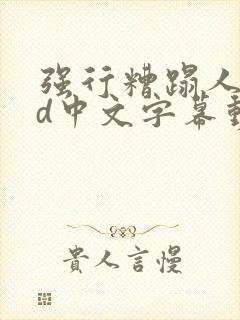 强行糟蹋人
d中文字幕
貴人言慢